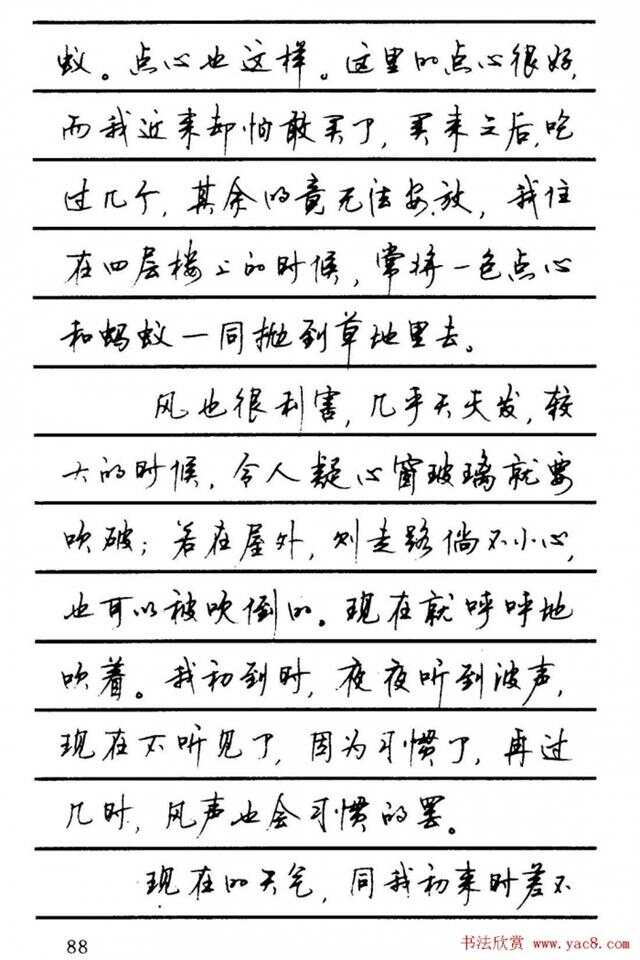 蚁。点心也这样。这里的点心很好，
而我近来却怕敢买了，买来之后，吃
过几个，其余的竟无法安放，我住
在四层楼上的时候，常将一包点心
和蚂蚁一同抛到草地里去。
风也很利害，几乎天天发，较
大的时候，令人疑心窗玻璃就要
吹破；若在屋外，则走路倘不小心，
也可以被吹倒的。现在就呼呼地
吹着。我初到时，夜夜听到波声，
现在不听见了，因为习惯了，再过
几时，风声也会习惯的罢。
现在的天气，同我初来时差不
88
书法欣赏 www.yac8.com